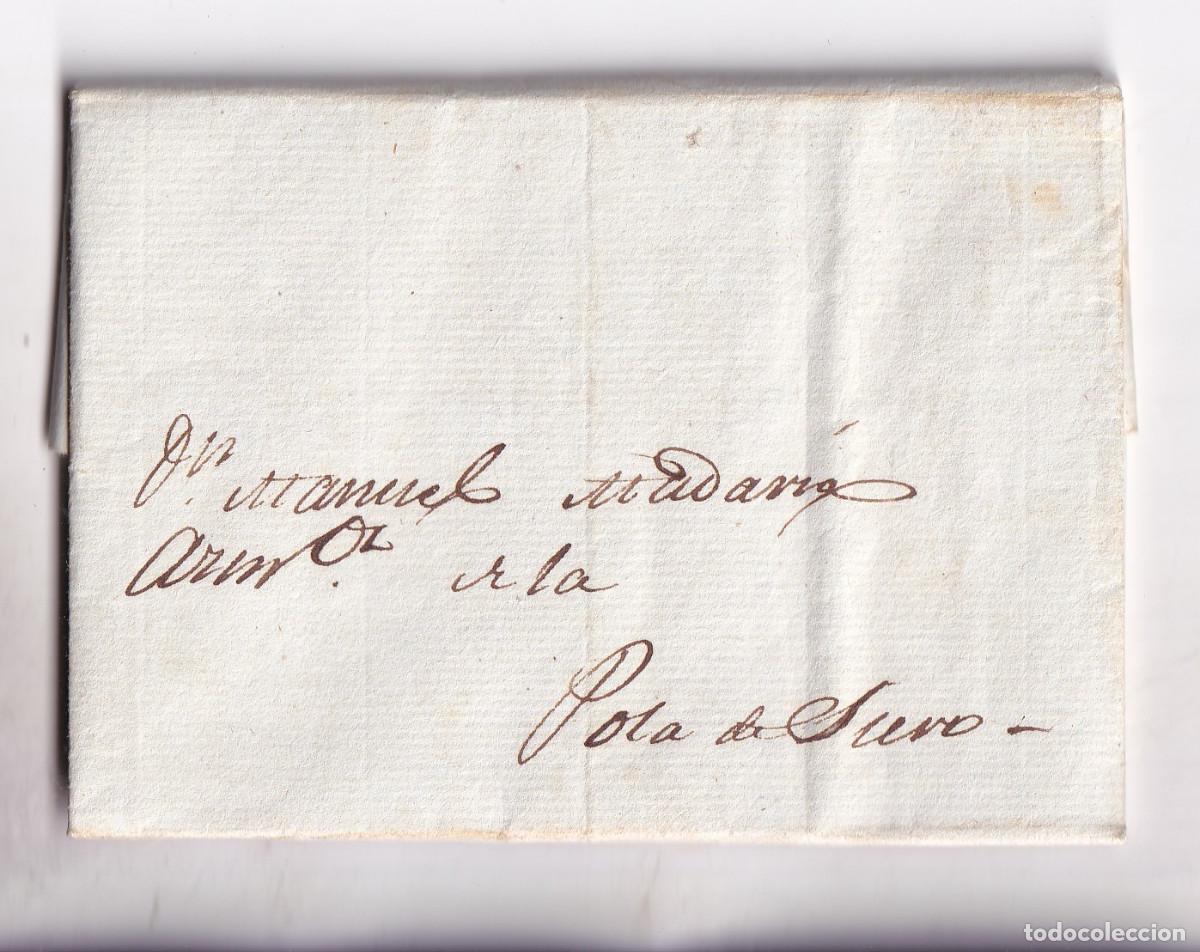 Dn. Manuel Madaria
de la
Pola de Siero -
todocoleccion